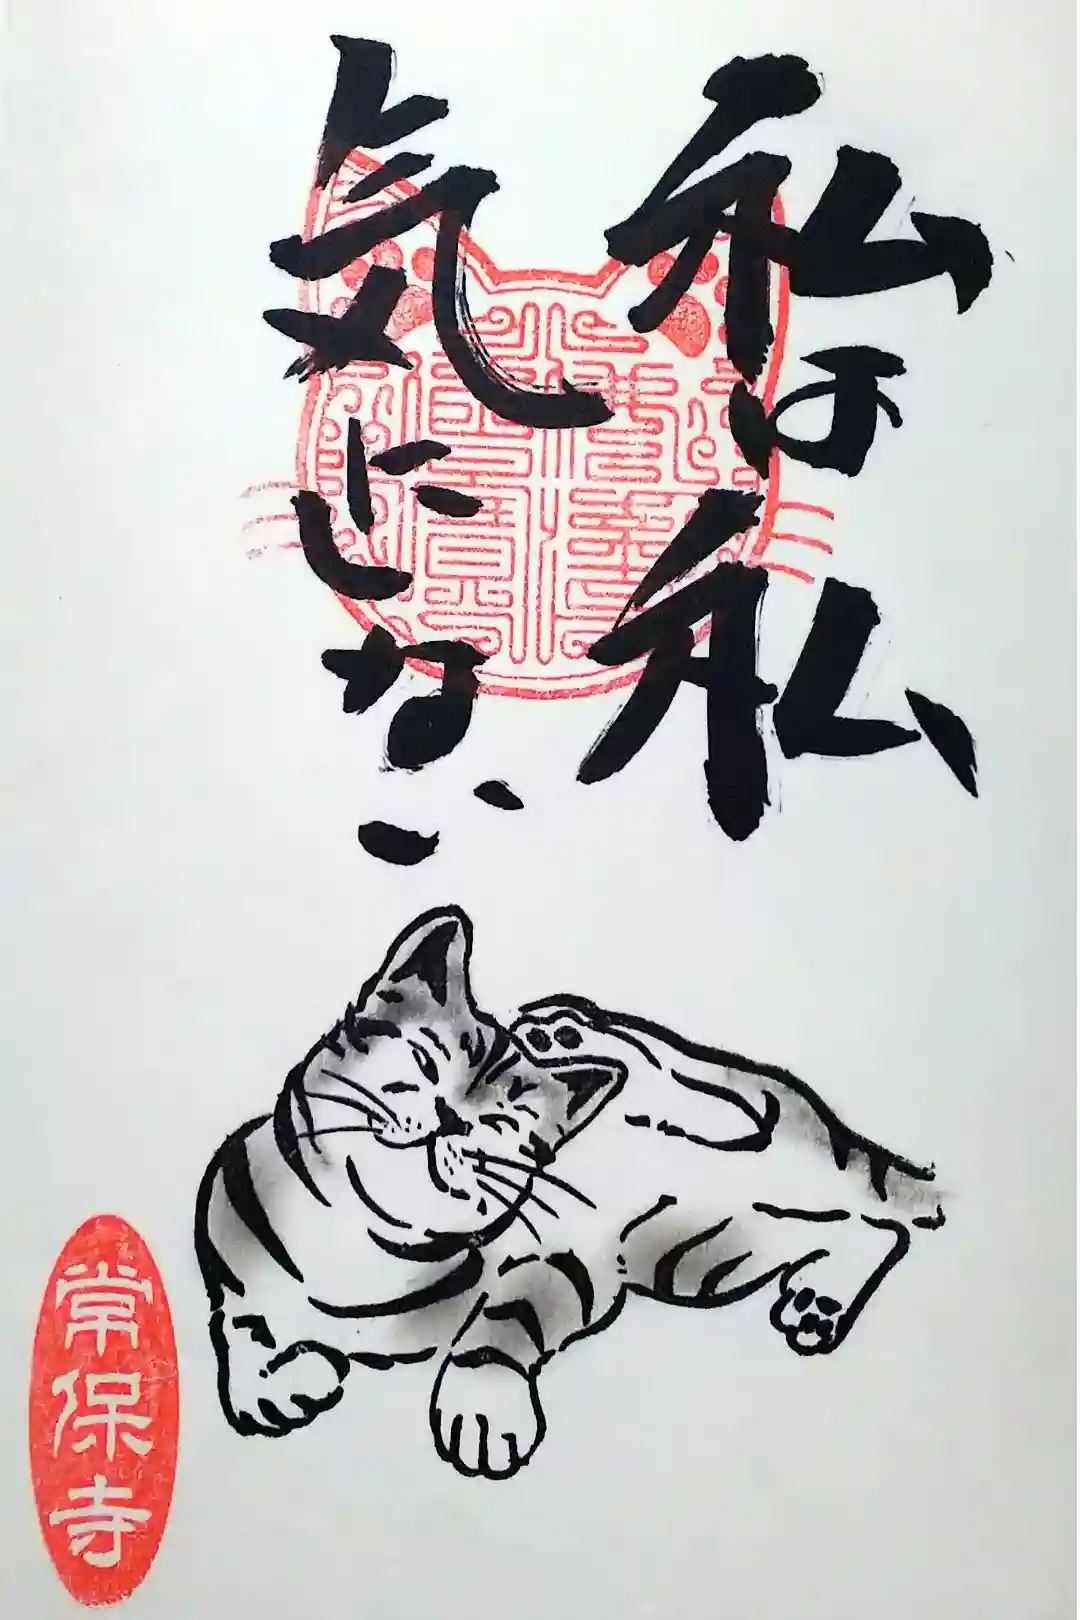 私は私
気にしない
常保寺